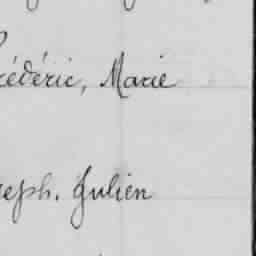 rédéric, Marie
seph. Julien